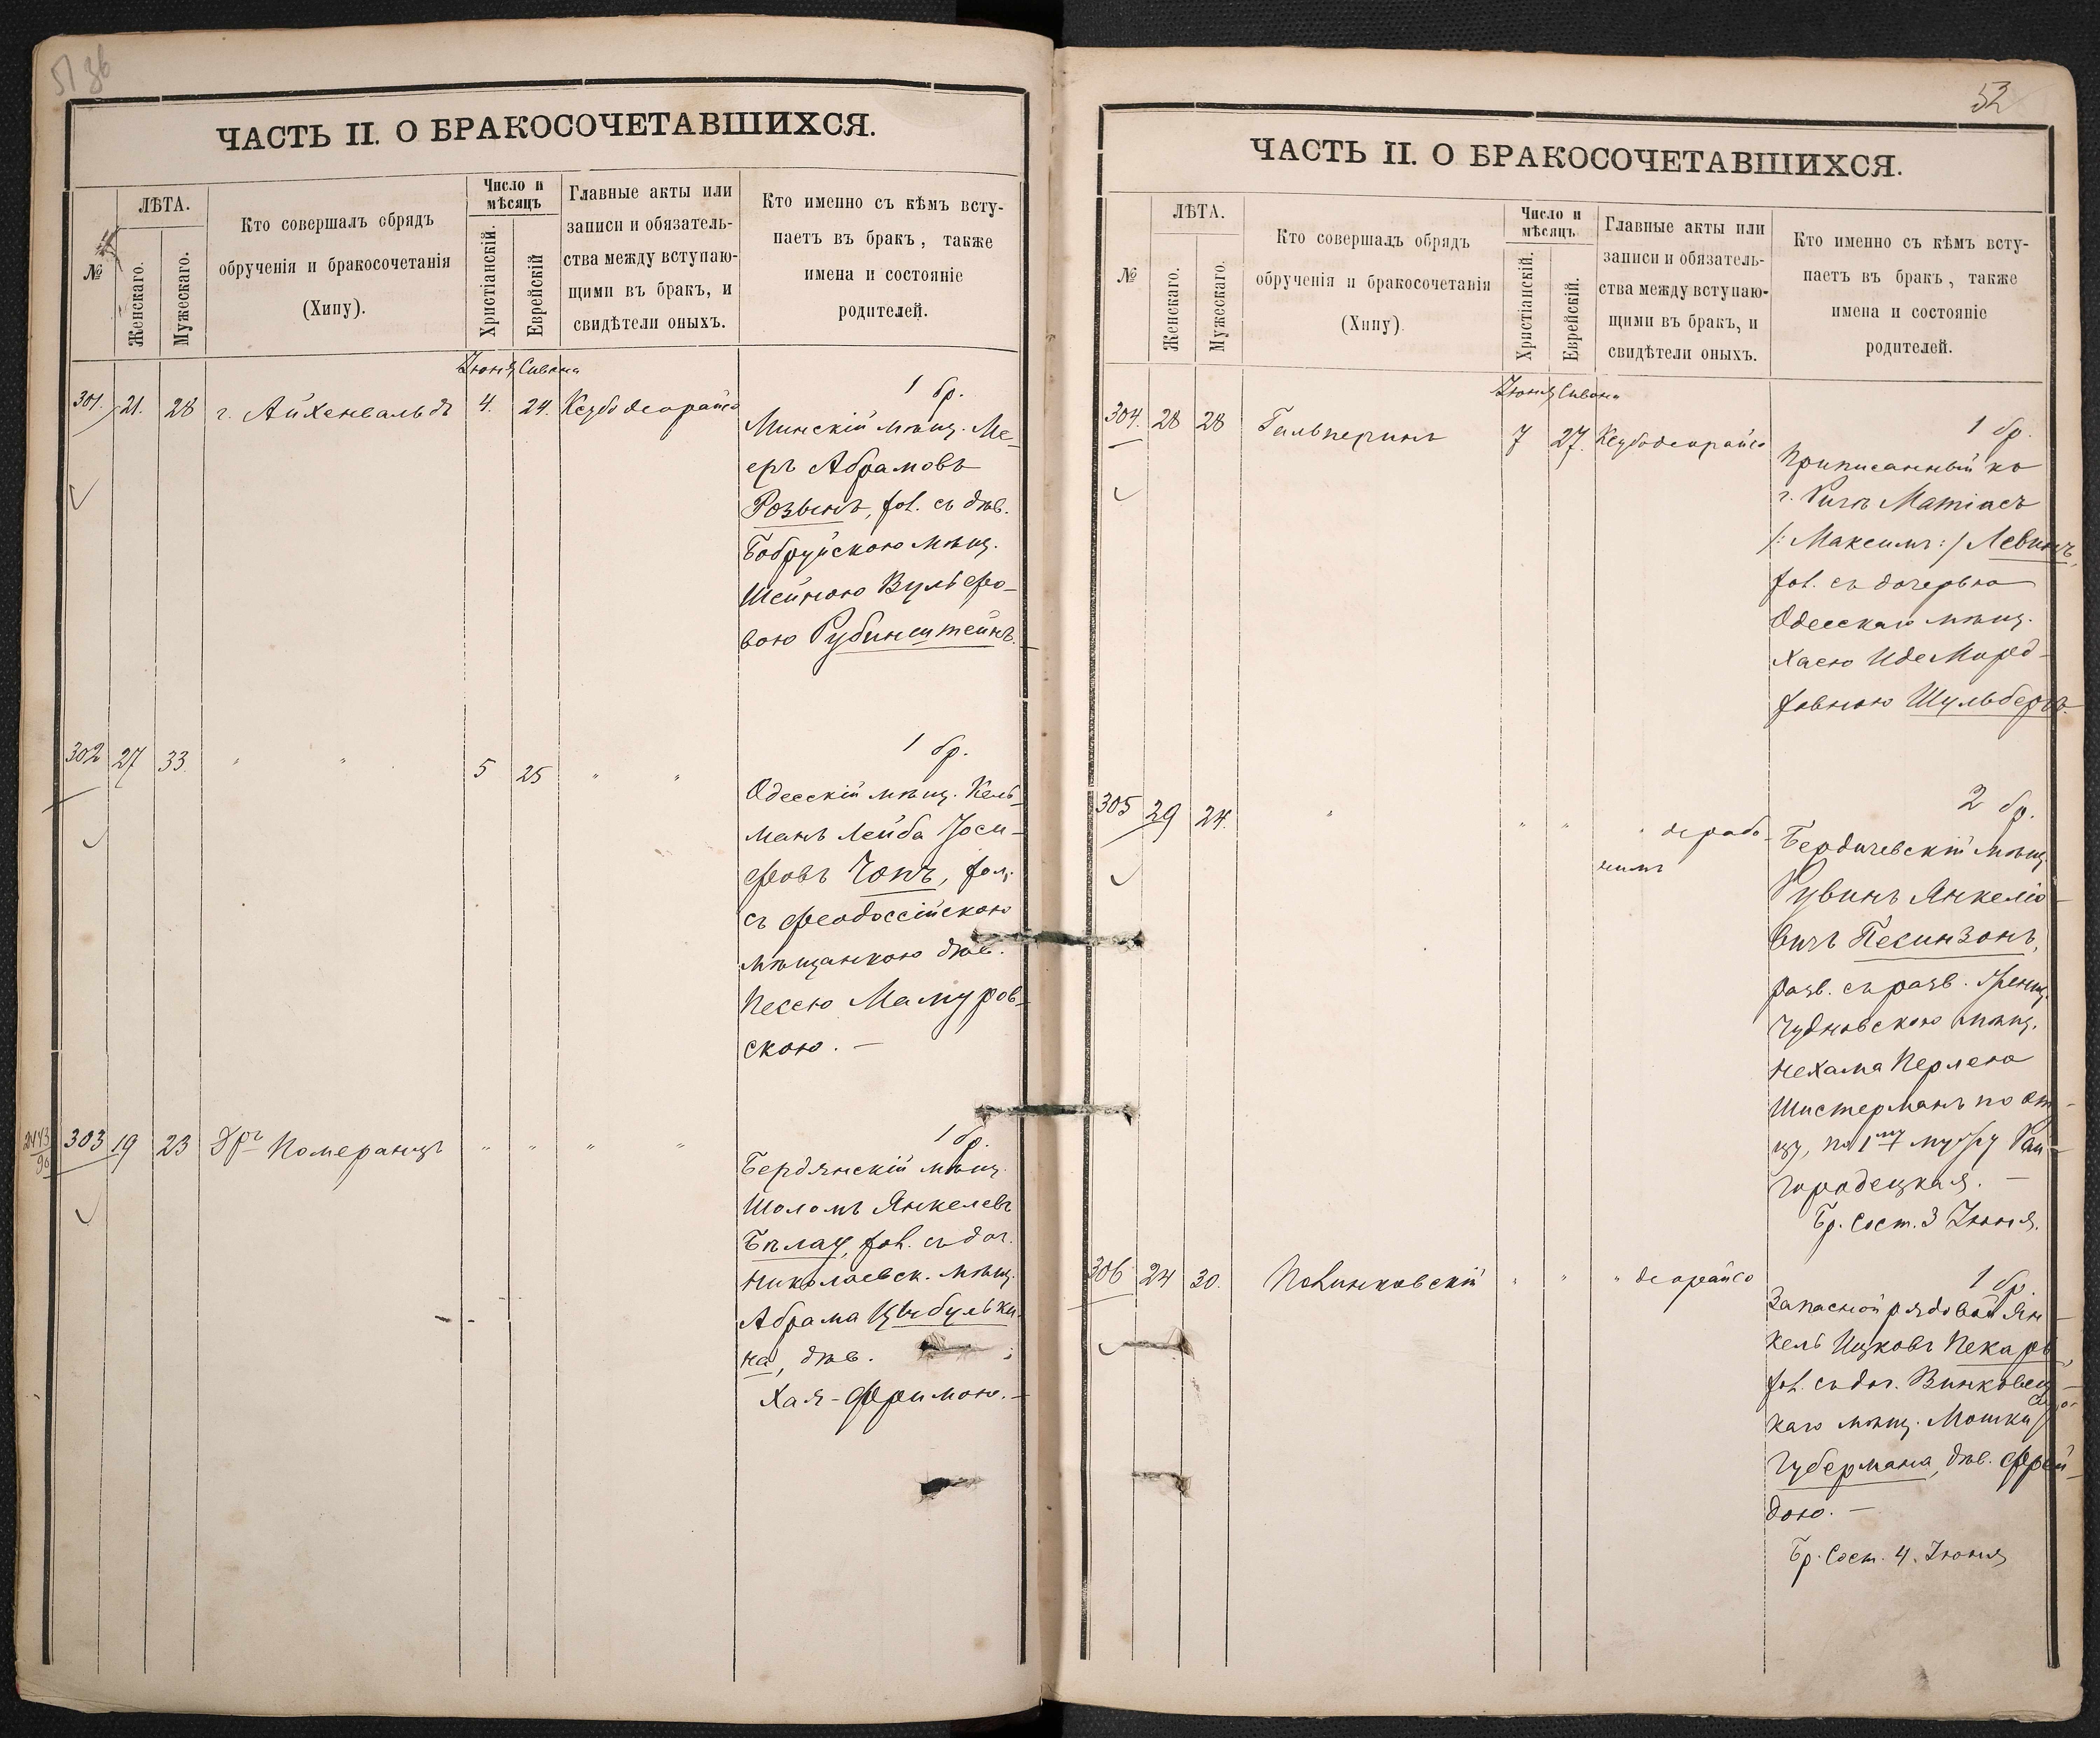 51 об
ЧАСТЬ II. О БРАКОСОЧЕТАВШИХСЯ.
№
ЛѢТА.
Женскаго.
Мужескаго.
Кто совершалъ обрядъ
обрученія и бракосочетанія
(Хипу).
Число и
мѣсяцъ
Христіанскій.
Еврейскій
Главные акты или
записи и обязатель-
ства между вступаю-
щими въ бракъ, и
свидѣтели оныхъ.
Кто именно съ кѣмъ всту-
паетъ въ бракъ, также
имена и состояніе
родителей.
Іюня Сивона
301. 21. 28 г. Айхенвальдъ 4. 24. Ксубо деорайсо
1 бр.
Минскій мѣщ. Ме-
еръ Абрамовъ
Розынъ, хол. съ дѣв.
Бобруйскою мѣщ.
Шейною Вульфо-
вою Рубинштейнъ.
302 27 33. " " 5 25 " "
1 бр.
Одесскій мѣщ. Кель-
манъ Лейба Іоси-
фовъ Чопъ, хол.
съ Феодоссійскою
мѣщанкою дѣв.
Песею Мамуров-
скою.
2443
90
303 19 23 Дръ Померанцъ " " " "
1 бр.
Бердянскій мѣщ.
Шоломъ Янкелевъ
хол. съ доч.
Николаевск. мѣщ.
Абрама Цыбульки-
на, дѣв.
Хая-Фримою.
52
ЧАСТЬ II. О БРАКОСОЧЕТАВШИХСЯ.
№
ЛѢТА.
Женскаго.
Мужескаго.
Кто совершалъ обрядъ
обрученія и бракосочетанія
(Хипу).
Число и
мѣсяцъ
Христіанскій.
Еврейскій.
Главные акты или
записи и обязатель-
ства между вступаю-
щими въ бракъ, и
свидѣтели оныхъ.
Кто именно съ кѣмъ всту-
паетъ въ бракъ, также
имена и состояніе
родителей.
Іюня Сивона
304. 28 28 Гальперинъ 7 27. Ксубо деорайсо
1 бр.
Приписанный къ
г. Ригѣ Матіасъ
/: Максимъ :/ Левинъ,
хол. съ дочерью
Одесскаго мѣщ.
Хаею Иде Мород-
ховною Шульберъ.
305 29 24. " " " " дерабо-
нимъ
2 бр.
Бердичевскій мѣщ.
Рувинъ Янкеліо-
вичъ Песинзонъ,
разв. съ разв.
Чудновскою мѣщ.
Нехама Перлею
Шистерманъ по от-
цу, по 1му мужу Рай-
городецкая.
Бр. сост. 3 Іюня.
306 24 30. Полинковскій " " " деорайсо
1 бр.
Запасной рядовой Ян-
кель Ицковъ Пекарь,
хол. съ доч. Винковец-
каго мѣщ. Мошки
Губермана, дѣв. Фрей-
дою.
Бр. сост. 4. Іюня